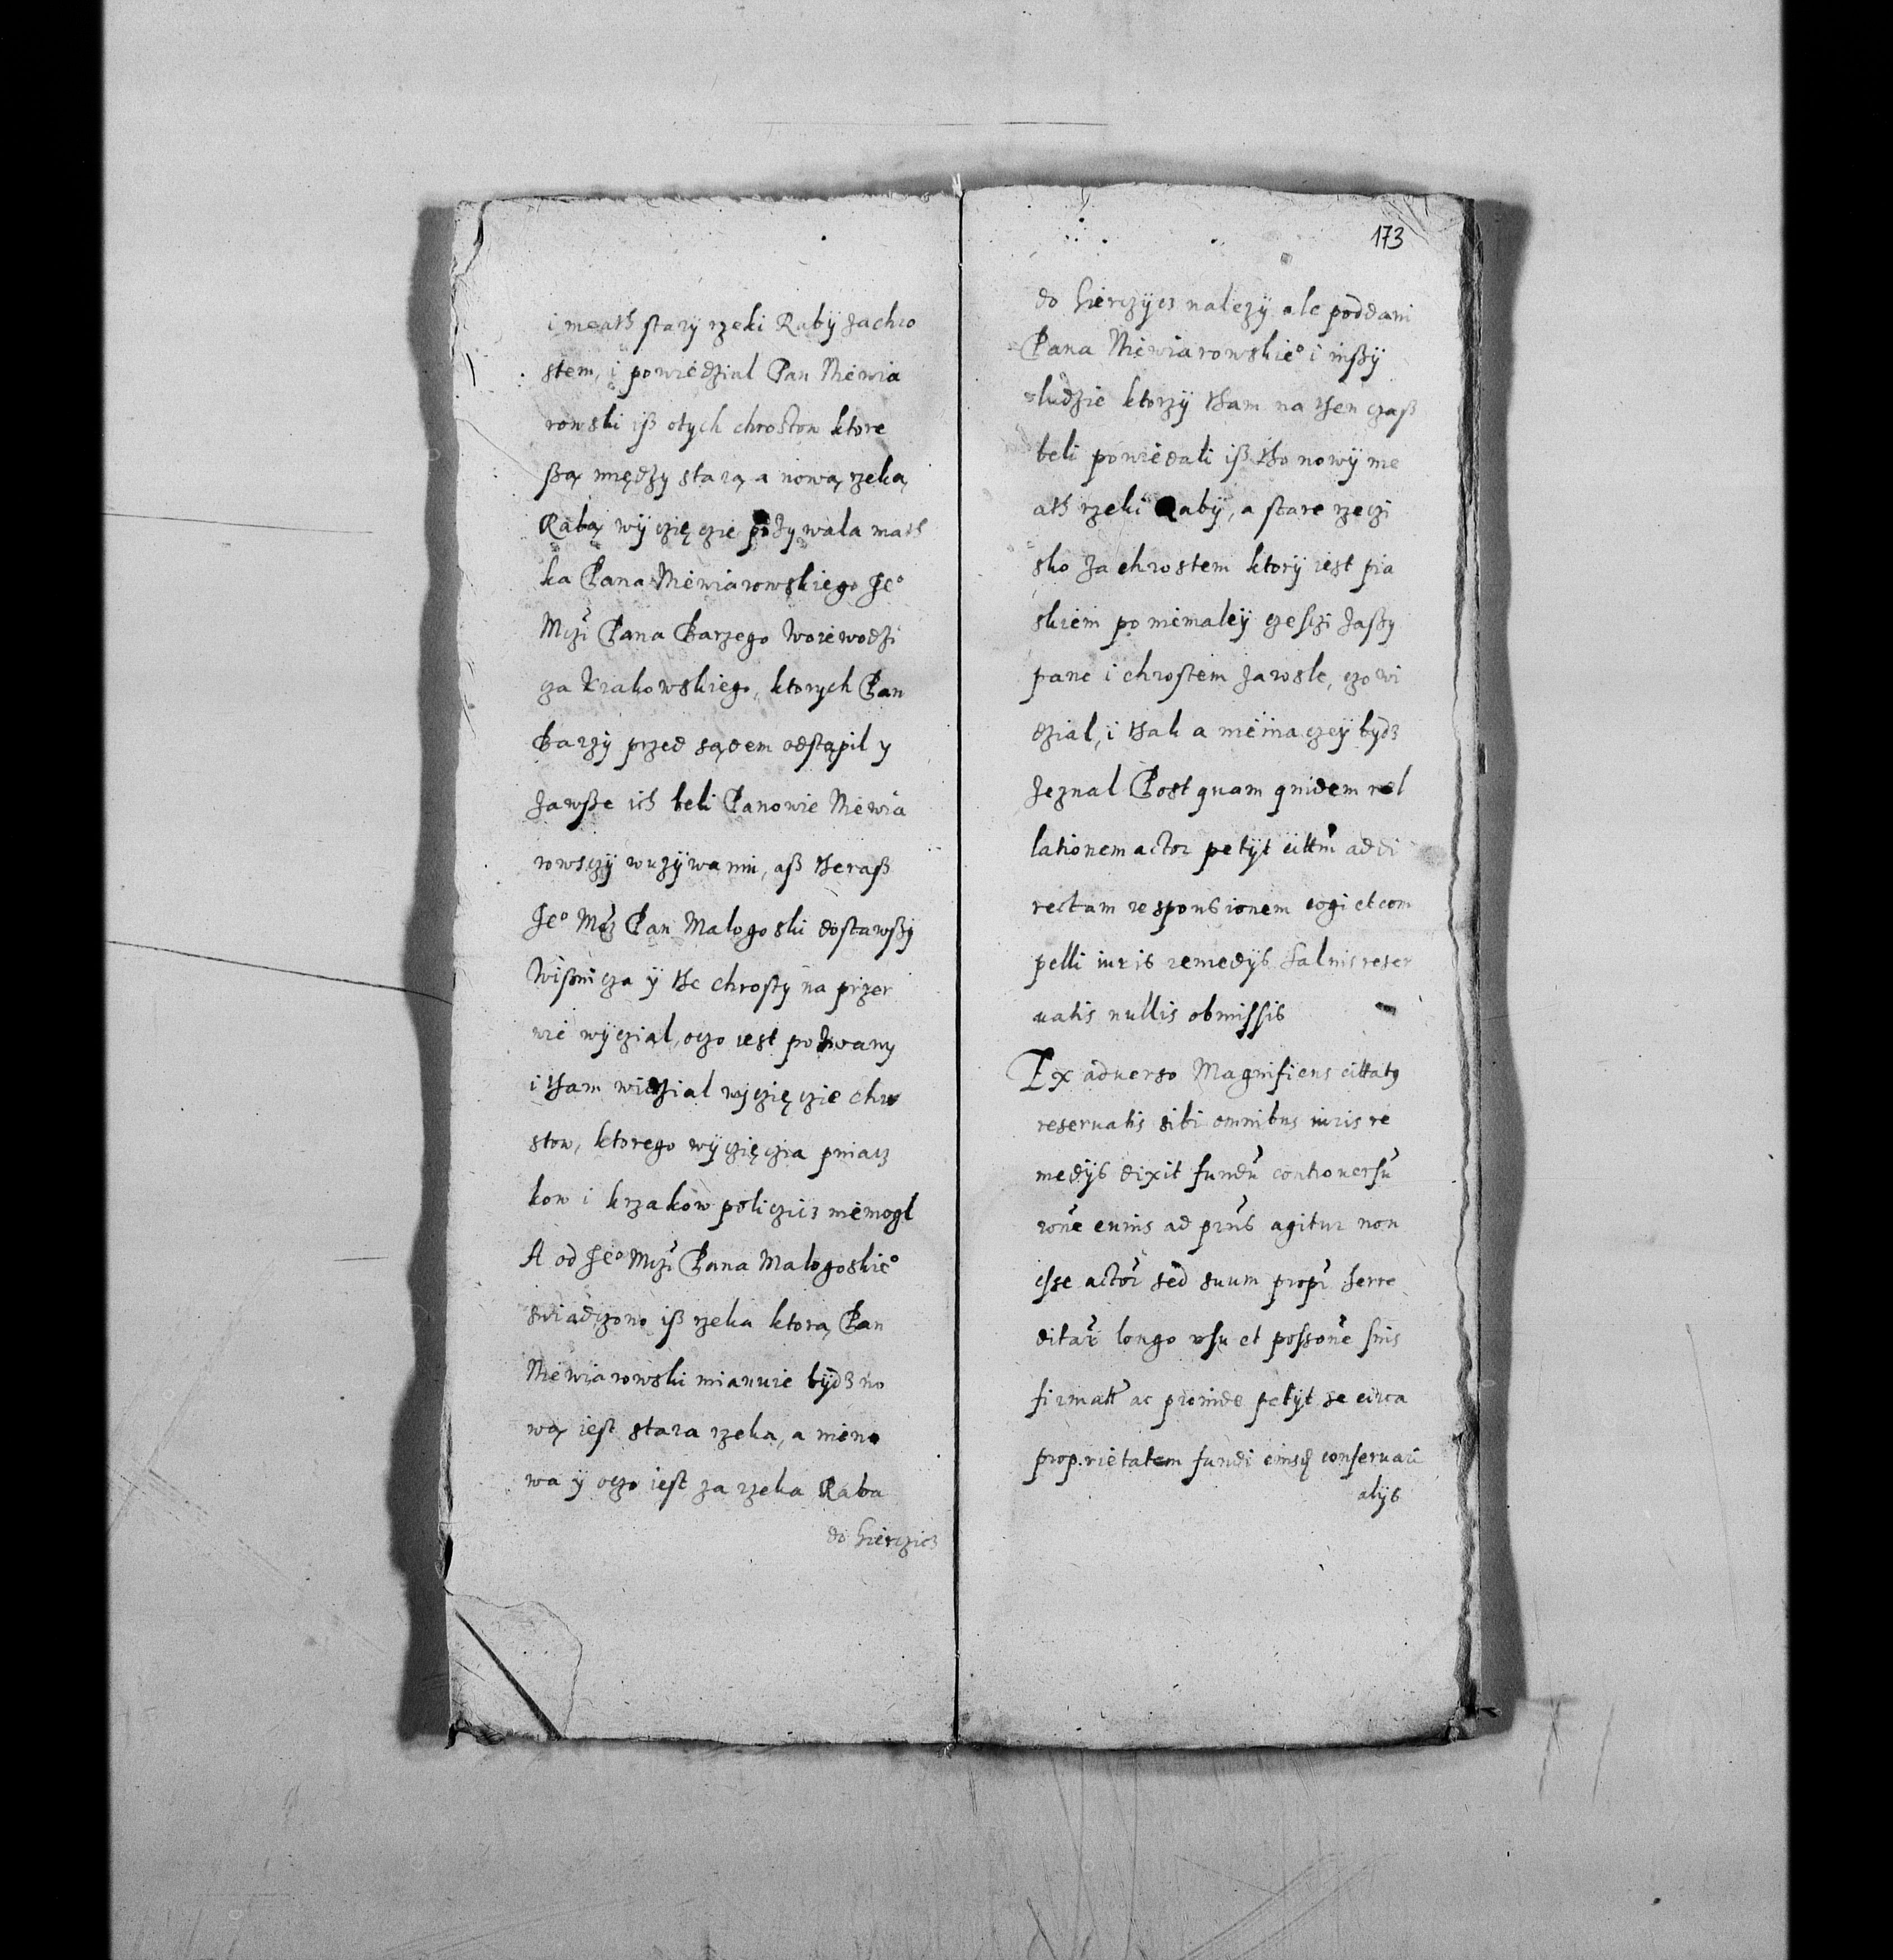 i meath starÿ rzeki Rabÿ Zachro
stem, i powiedzial Pan Niewia
rowski iß otych chrostow ktore
ßą między starą a nową rzeką
Rabą wÿczięczie pozywala math
ka Pana Niewiarowskiego Je°
Mczi Pana Barzego Woiewodzi
cza Krakowskiego, ktorych Pan
Barzÿ przed sądem odstąpil y
Zawße ich beli Panowie Niewia
rowsczÿ wuzÿwaniu, aß theraß
Je° Mcz Pan Malogoski dostawßÿ
Wißnicza ÿ the chrosty na przer
wie wÿczial, oczo iest pozwany
i tham widzial wyczięczie chro
stow, ktorego wÿczięczia pniacz
kow i krzakow policzicz niemogl
A od Je° Mczi Pana Malogoskie°
swiadczono iß rzeka ktorą Pan
Niewiarowski mianuie bÿdz no
wą iest stara rzeka, a nieno
wa ÿ oczo iest za rzeka Raba
do hierczicz
173
do hierczÿcz nalezÿ ale poddani
Pana Niewiarowskie° i inßÿ
ludzie ktorzÿ tham na then czaß
beli powiedali iß tho nowÿ me
ath rzeki Rabÿ, a stare rzeczi
sko Zachrostem ktorÿ iest pia
skiem po niemaleÿ czesczi Zaßy
pane i chrostem Zarosle, czo wi
dzial, i thak a nieinaczeÿ bydz
Zeznal Post quam quidem rel
lationem actor petÿt cittm ad di
rectam responsionem cogi et com
pelli iuris remedÿs salvis reser
uatis nullis obmissis
Ex aduerso Magnificus cittatg
reseruatis sibi omnibus iuris re
medÿs dixit fundu controuersu
rone cuius ad prns agitur non
esse actor sed suum propr herre
ditar longo usu et possone suis
firmatt ac proinde petÿt se circa
proprietatem fundi eiusq conseruari
alÿs